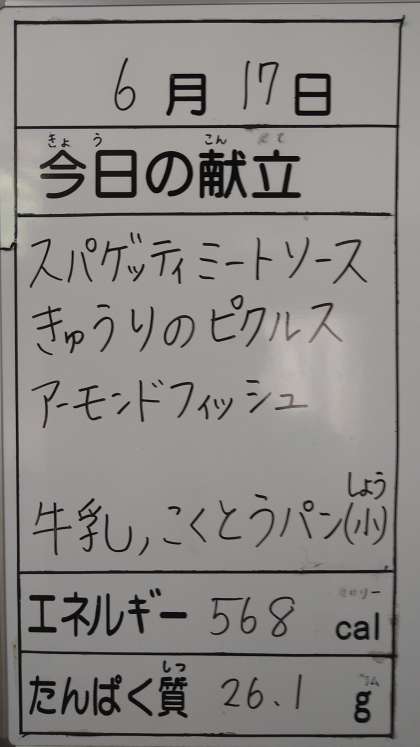 6月17日
きょう こん
今日の献立
スパゲッティミートソース
きゅうりのピクルス
アーモンドフィッシュ
しょう
牛乳、こくとうパン(小)
エネルギー 568 cal
しつ
たんぱく質 26.1 g